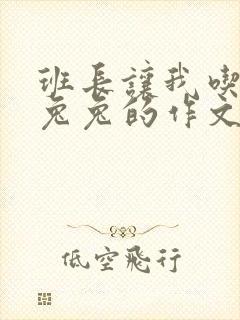 班长讓我喫
兔兔的作文
低空飛行